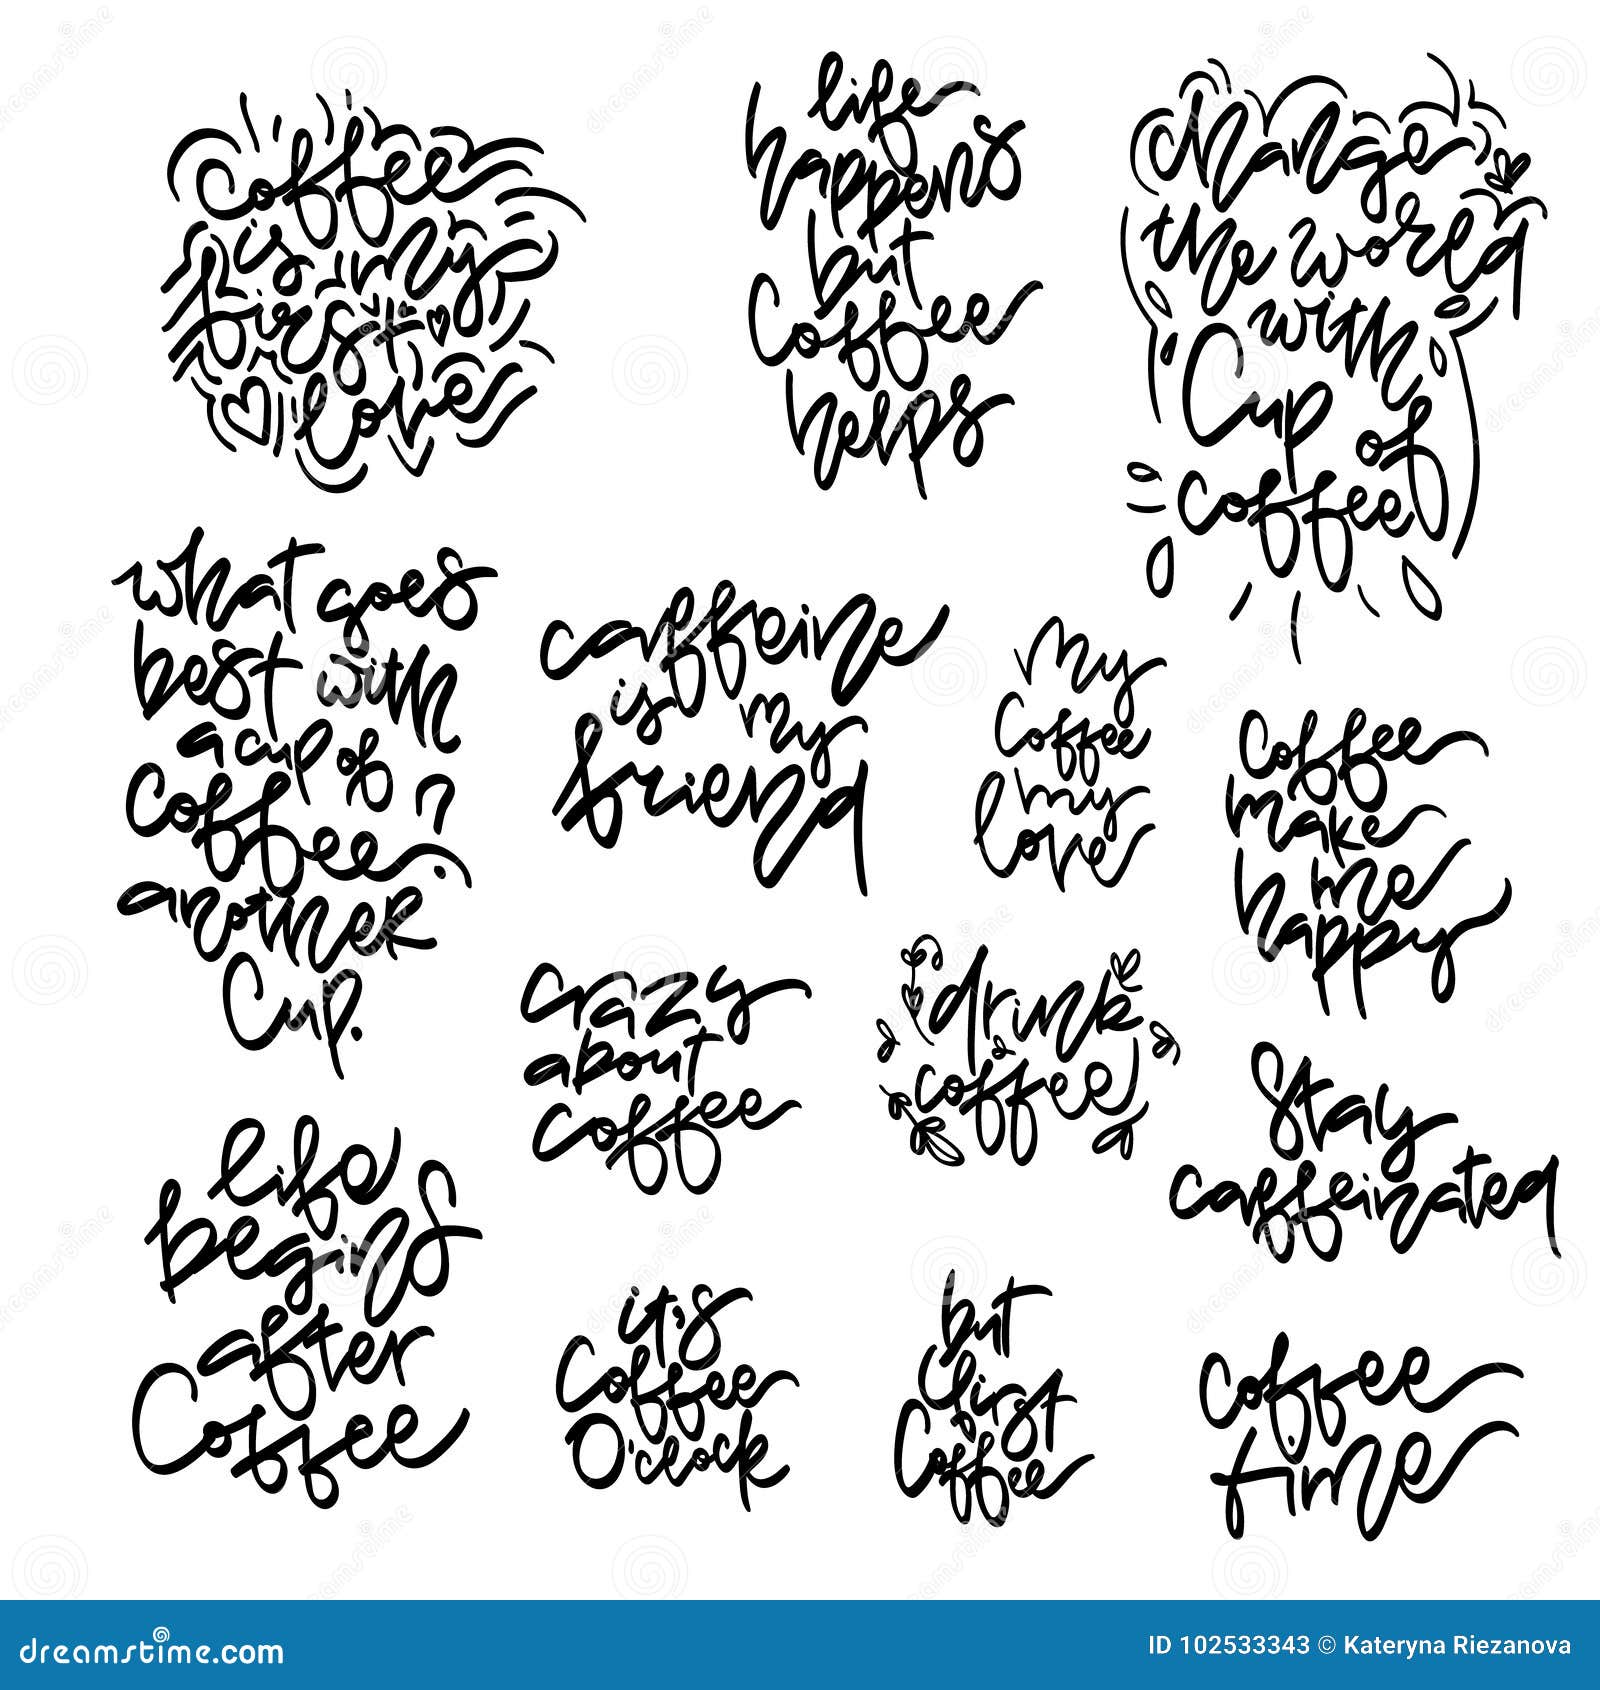 Coffee
is my
first
love
life
happens
but
Coffee
helps
Change
the world
with
Cup of
coffee
what goes
best with
a cup of
Coffee?
another
Cup.
caffeine
is my
friend
My
Coffee
my
love
Coffee
make
me
happy
crazy
about
coffee
drink
coffee
Stay
caffeinated
life
begins
after
Coffee
it's
Coffee
O'clock
but
first
Coffee
coffee
time
dreamstime.com
ID 102533343 © Kateryna Riezanova